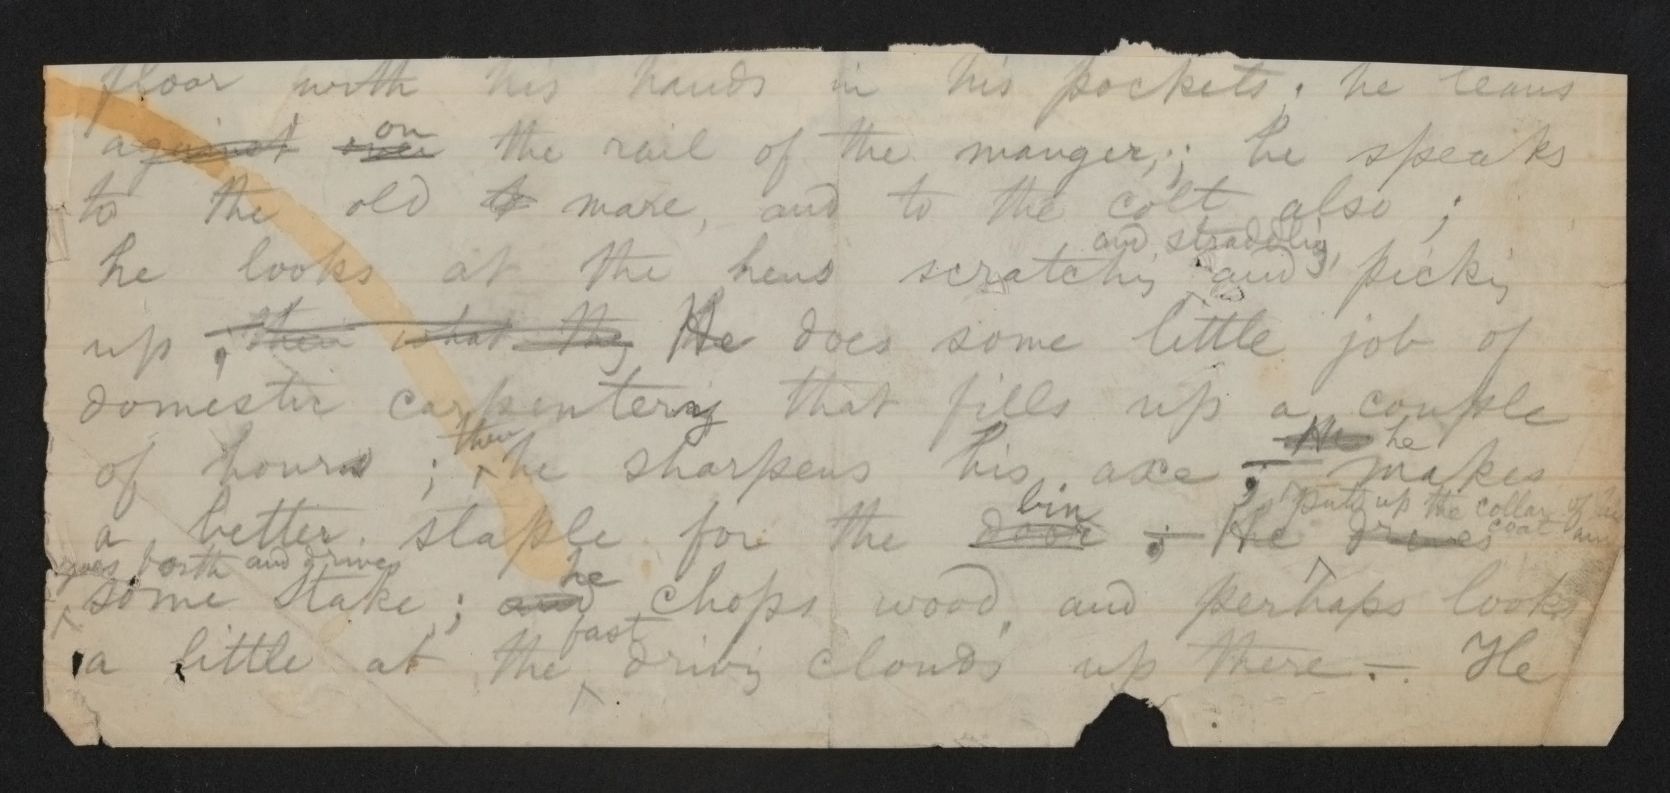 floor with his hands in his pockets; he leans
against over on the rail of the manger,; he speaks
to the old to mare, and to the colt also ;
and straddlig,
he looks at the hens scratchig and pickig
up , then what they He does some little job of
domestic carpenterig that fills up a couple
then He he
of hours ; he sharpens his axe ; makes
bin puts up the collar of his
a better staple for the door ; He drives coat
goes forth and drives he
some stake ; and chops wood, and perhaps looks
fast
a little at the drivig clouds up there.— He